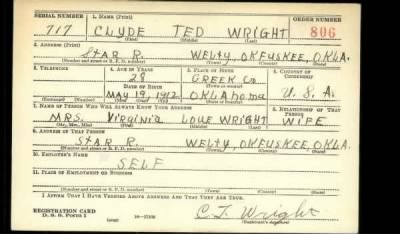 SERIAL NUMBER 1. NAME (Print) ORDER NUMBER
717 CLYDE TED WRIGHT 806
(First) (Middle) (Last)
2. ADDRESS (Print)
STAR R. WELTY, OKFUSKEE, OKLA.
(Number and street or R. F. D. number) (Town) (County) (State)
3. TELEPHONE 4. AGE IN YEARS 5. PLACE OF BIRTH 6. COUNTRY OF CITIZENSHIP
28 GREEK Co
DATE OF BIRTH (Town or county)
MAY 19, 1912 OKLAHOMA U.S.A.
(Exchange) (No.) (Mo.) (Day) (Yr.) (State or country)
7. NAME OF PERSON WHO WILL ALWAYS KNOW YOUR ADDRESS 8. RELATIONSHIP OF THAT PERSON
MRS. Virginia LOUE WRIGHT WIFE
(Mr., Mrs., Miss) (First) (Middle) (Last)
9. ADDRESS OF THAT PERSON
STAR R. WELTY, OKFUSKEE, OKLA.
(Number and street or R. F. D. number) (Town) (County) (State)
10. EMPLOYER'S NAME
SELF
11. PLACE OF EMPLOYMENT OR BUSINESS
(Number and street or R. F. D. number) (Town) (County) (State)
I AFFIRM THAT I HAVE VERIFIED ABOVE ANSWERS AND THAT THEY ARE TRUE.
REGISTRATION CARD
D. S. S. Form 1 16-17105 C.T. Wright
(Registrant's signature)